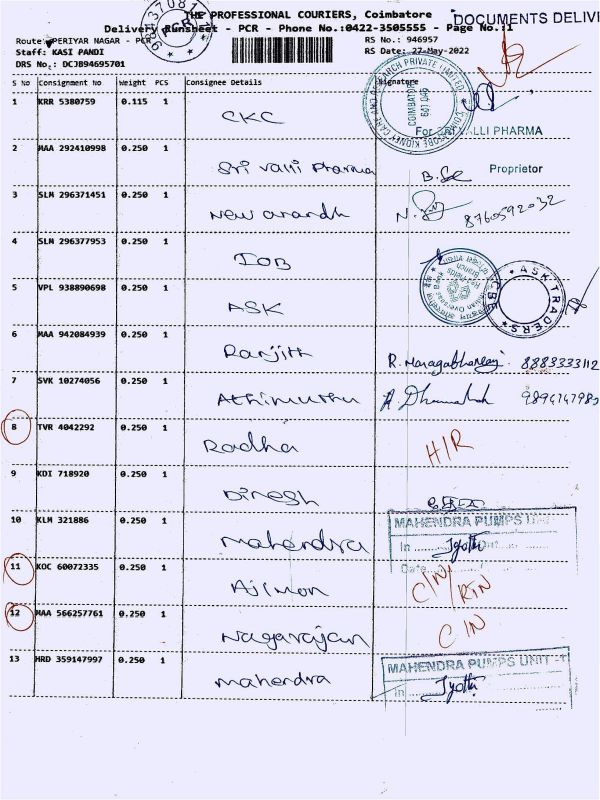 THE PROFESSIONAL COURIERS, Coimbatore
DOCUMENTS DELIVE
Delivery Runsheet - PCR - Phone No.:0422-3505555 - Page No.:1
Route: PERIYAR NAGAR - PCR RS No.: 946957
Staff: KASI PANDI RS Date: 27-May-2022
DRS No.: DCJB94695701
PCR
S No Consignment No Weight PCS Consignee Details Signature
1 KRR 5380759 0.115 1 CKC
COIMBATORE
641 045
For SRI VALLI PHARMA
2 MAA 292410998 0.250 1 Sri Valli Pharma
Proprietor
3 SLM 296371451 0.250 1 New anandh 8760592032
4 SLM 296377953 0.250 1 IOB
5 VPL 938890698 0.250 1 ASK
* ASK TRADERS * CBE
6 MAA 942084939 0.250 1 Ranjith 8883333112
7 SVK 10274056 0.250 1 Athimuthu
8 TVR 4042292 0.250 1 Radha H/R
9 KDI 718920 0.250 1 Dinesh
10 KLM 321886 0.250 1 Mahendra
MAHENDRA PUMPS UNIT
In Jyothi Out
Date
11 KOC 60072335 0.250 1 Ajimon C/N/RTN
12 MAA 566257761 0.250 1 Nagarajan C/N
13 HRD 359147997 0.250 1 Mahendra
MAHENDRA PUMPS UNIT -1
In Jyothi